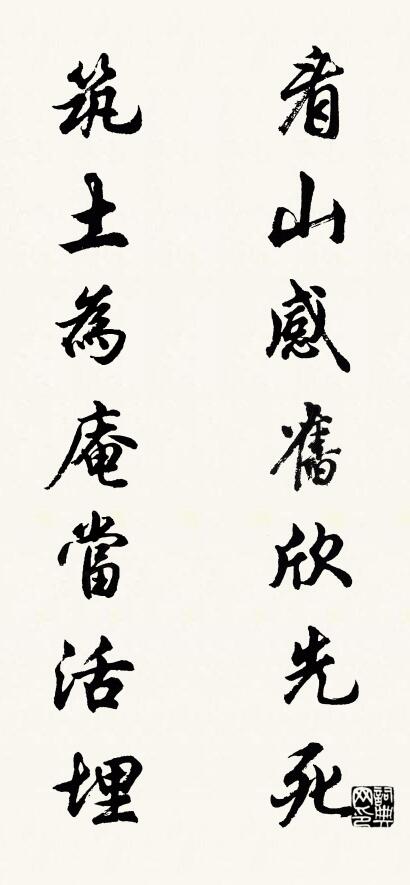 看山感舊欣先死
筑土為庵當活埋
詞典網印